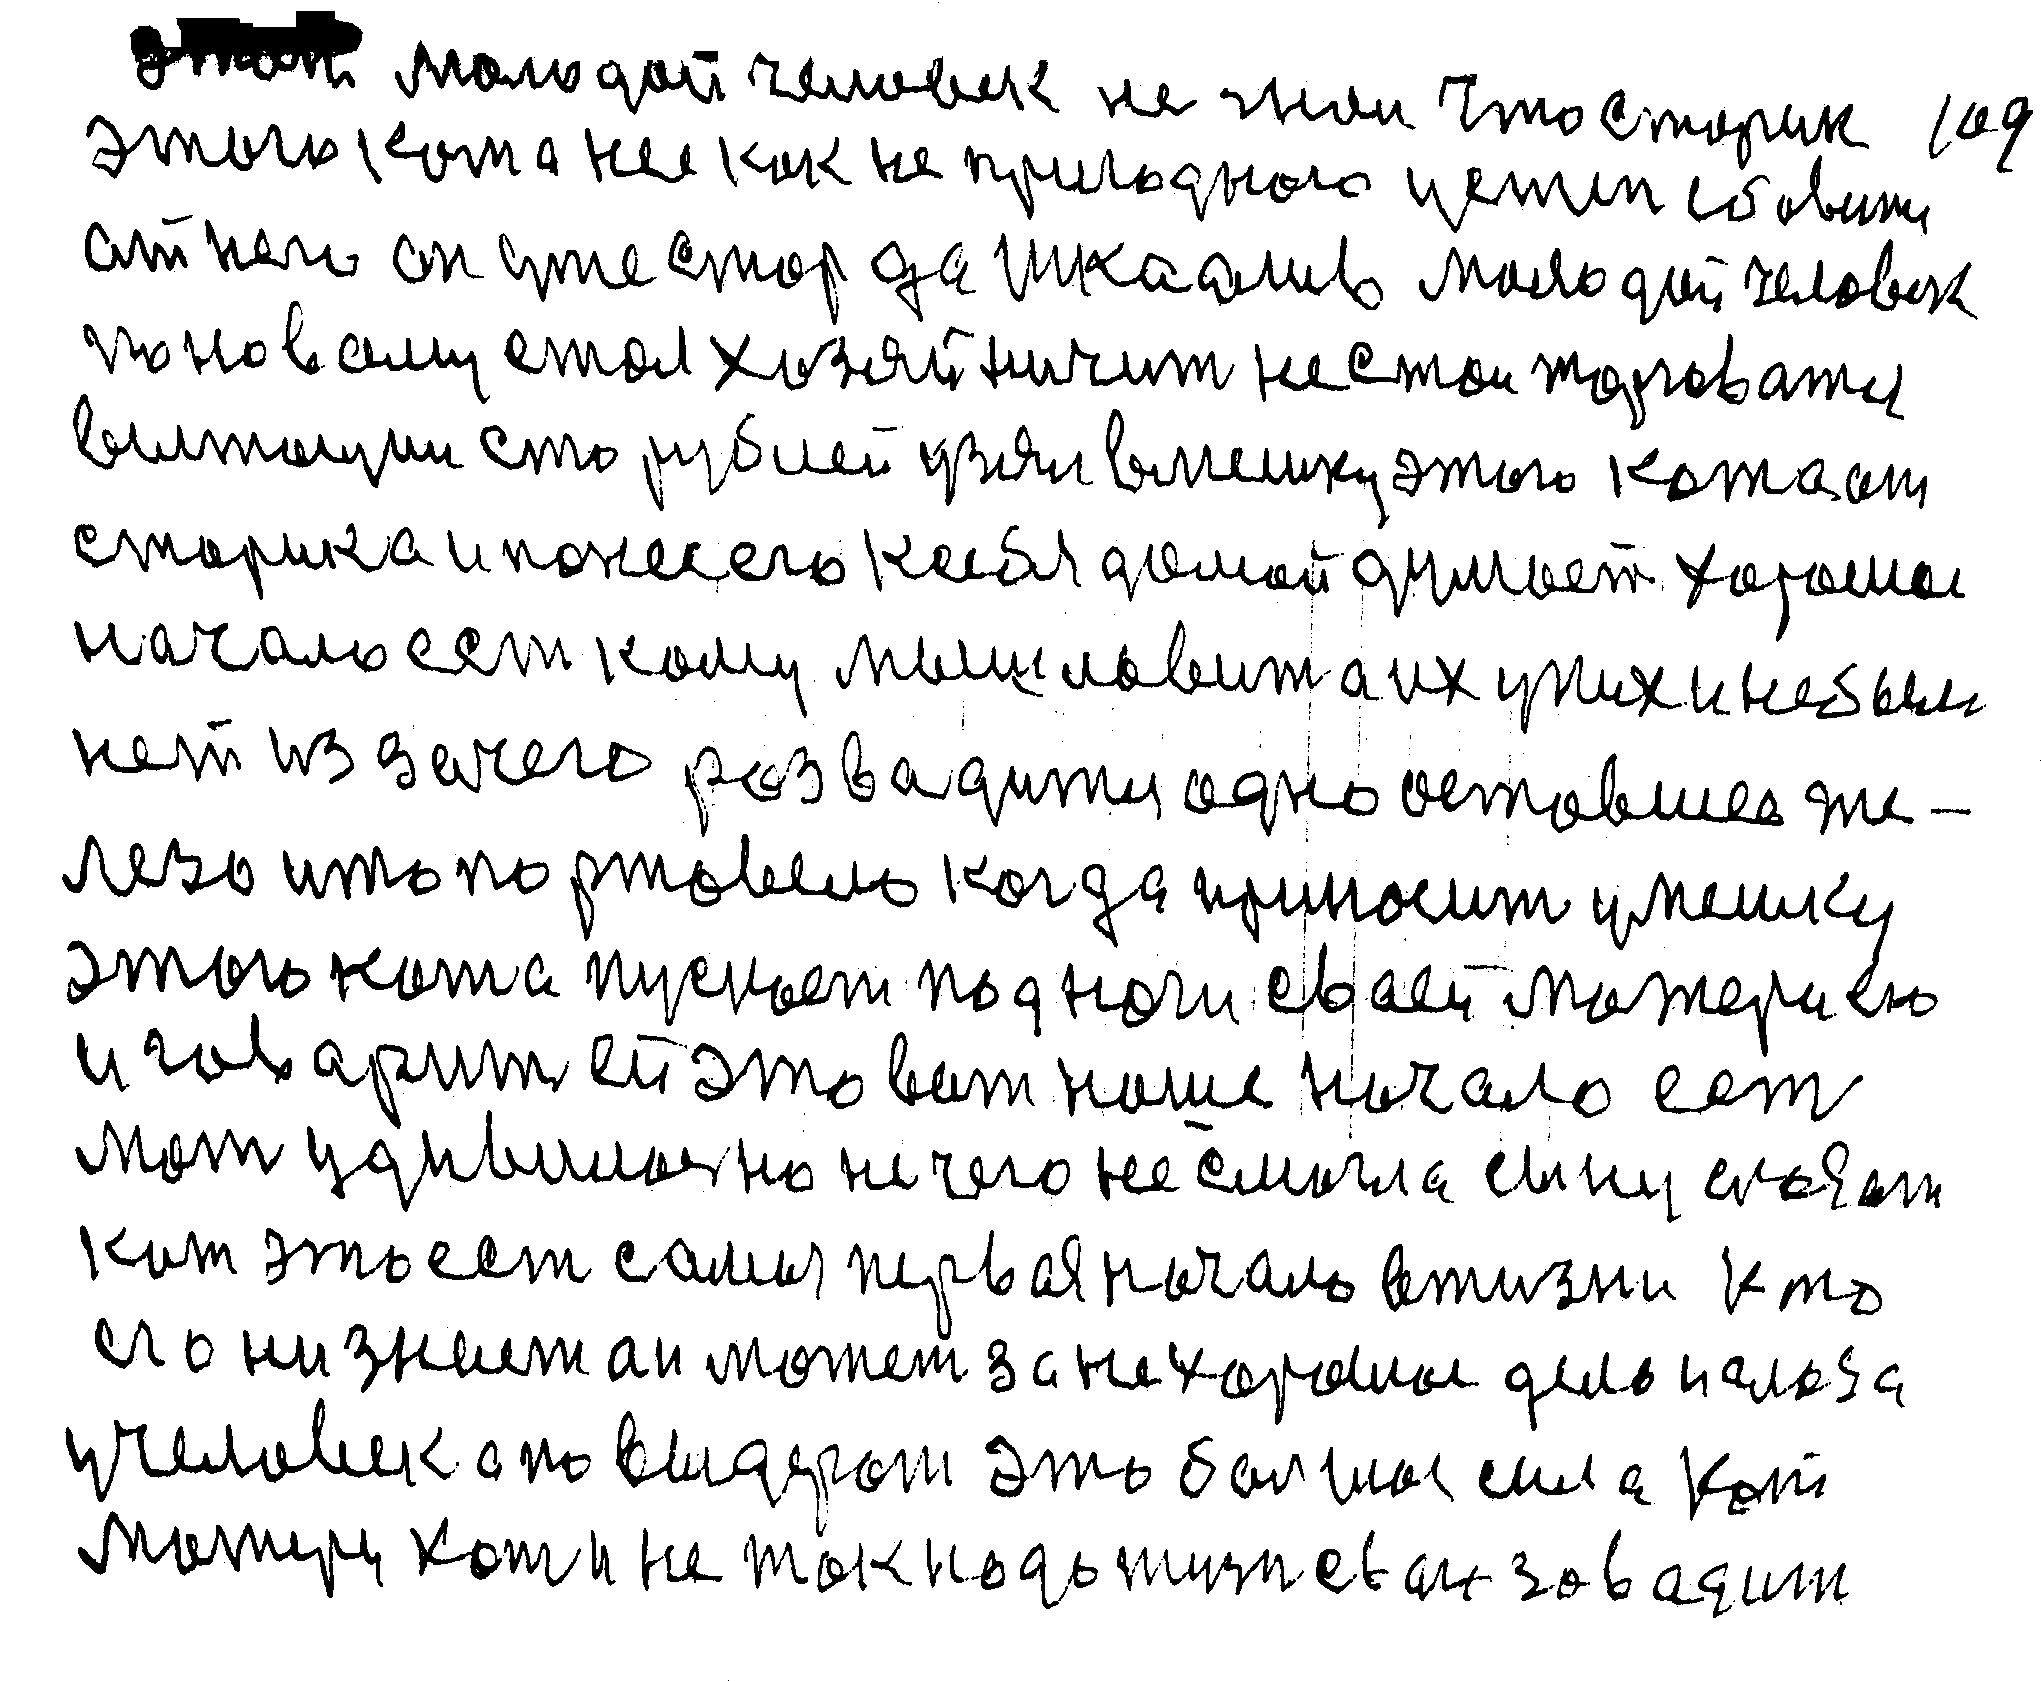 этот молодой человек не знал что старик 109
этого кота нее как не пригодного цетил
от него он уже стар да молодой человек
по новому стал хозяйничит не стал торговаться
сто рублей узял вмешку этого кота от
старика и понес его ксебя домой думает хорошое
начало ест кому мыш ловит а их у них и небыли
нет из за чего розвадити одно оставшее же-
лезо и то портовело когда приносит у мешку
этого кота пускает под ноги сваей матерею
и говарит ей это вот наше начало ест
мат удивилась но не чего не смогла сыну сказат
кот это ест самоя первая начало вжизни кто
его ни знает а и может за не хорошое дело и слоза
у человека по выдерат это болшоя сила кот
матери кот и не так надо жизн сваю завадит